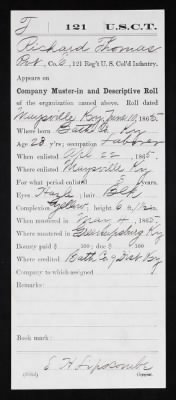 T | 121 | U.S.C.T.
Richard Thomas
Pvt., Co. G, 121 Reg't U. S. Col'd Infantry.
Appears on
Company Muster-in and Descriptive Roll
of the organization named above. Roll dated
Maysville Ky, June 10, 1865
Where born Bath Co., Ky
Age 23 y'rs; occupation Laborer
When enlisted Apr 22, 1865.
Where enlisted Maysville Ky
For what period enlisted 3 years.
Eyes Hazle; hair Blk
Complexion Yellow; height 6 ft. in.
When mustered in May 4, 1865.
Where mustered in Greenupsburg Ky
Bounty paid $ 100; due $ 100
Where credited Bath Co Dist Ky
Company to which assigned
Remarks:
Book mark:
E H Lipscomb
Copyist.